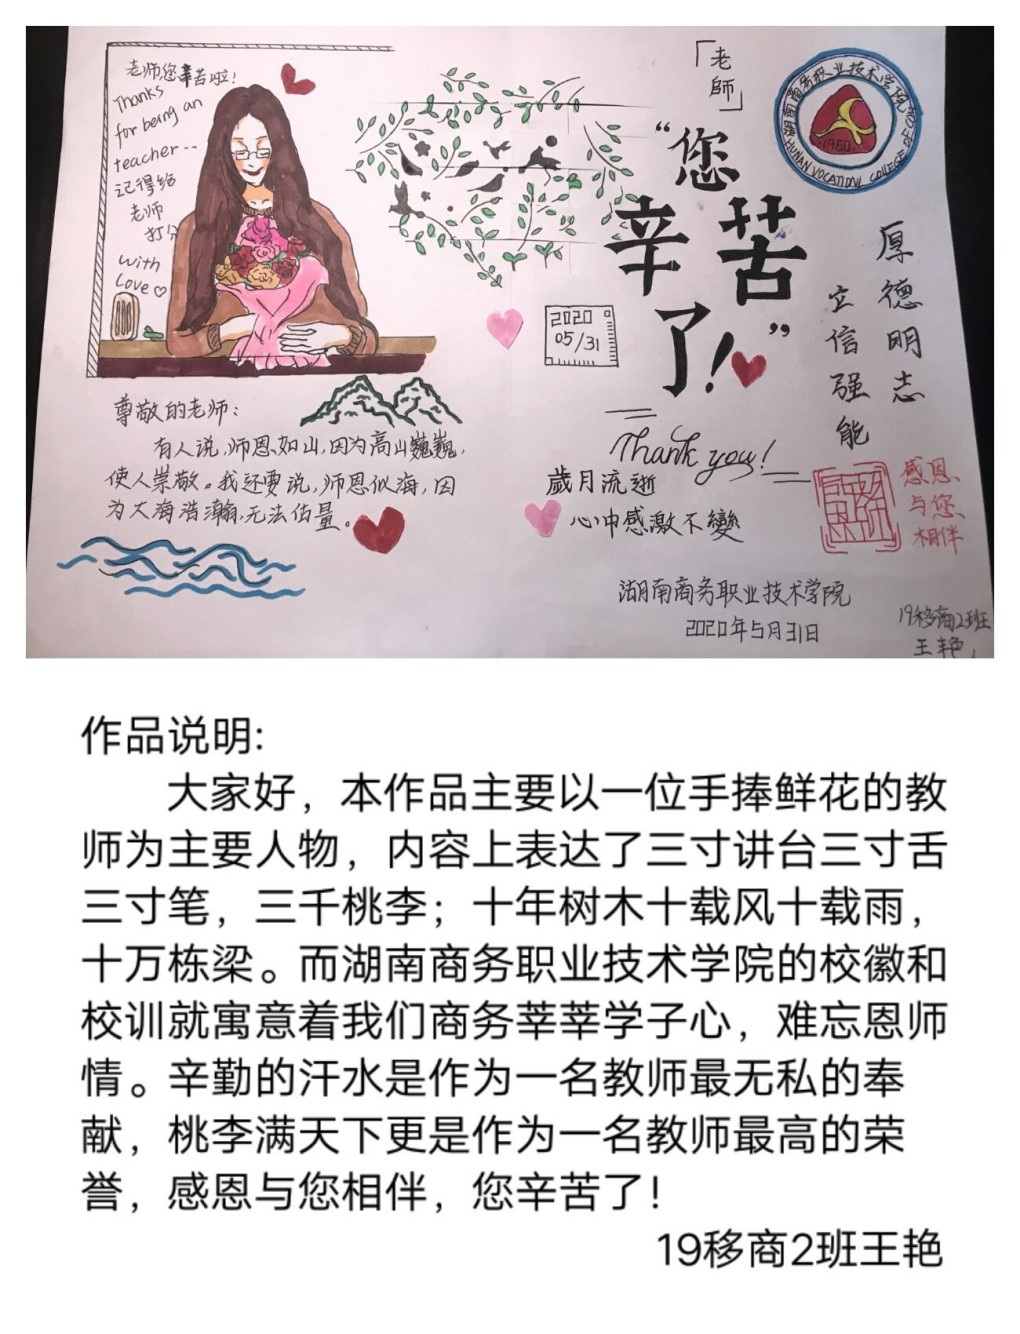 老师您辛苦啦！
Thanks
for being an
teacher--
记得给
老师
打分
with
Love
「老師」
“您
辛苦
了！”
湖南商务职业技术学院
1960
厚德明志
立信强能
2020
05/31
尊敬的老师：
有人说，师恩如山，因为高山巍巍，
使人崇敬。我还要说，师恩似海，因
为大海浩瀚，无法估量。
Thank you!
歲月流逝
心中感激不變
感恩
与您
相伴
湖南商务职业技术学院
2020年5月31日
19移商2班
王艳
作品说明:
大家好，本作品主要以一位手捧鲜花的教
师为主要人物，内容上表达了三寸讲台三寸舌
三寸笔，三千桃李；十年树木十载风十载雨，
十万栋梁。而湖南商务职业技术学院的校徽和
校训就寓意着我们商务莘莘学子心，难忘恩师
情。辛勤的汗水是作为一名教师最无私的奉
献，桃李满天下更是作为一名教师最高的荣
誉，感恩与您相伴，您辛苦了!
19移商2班王艳